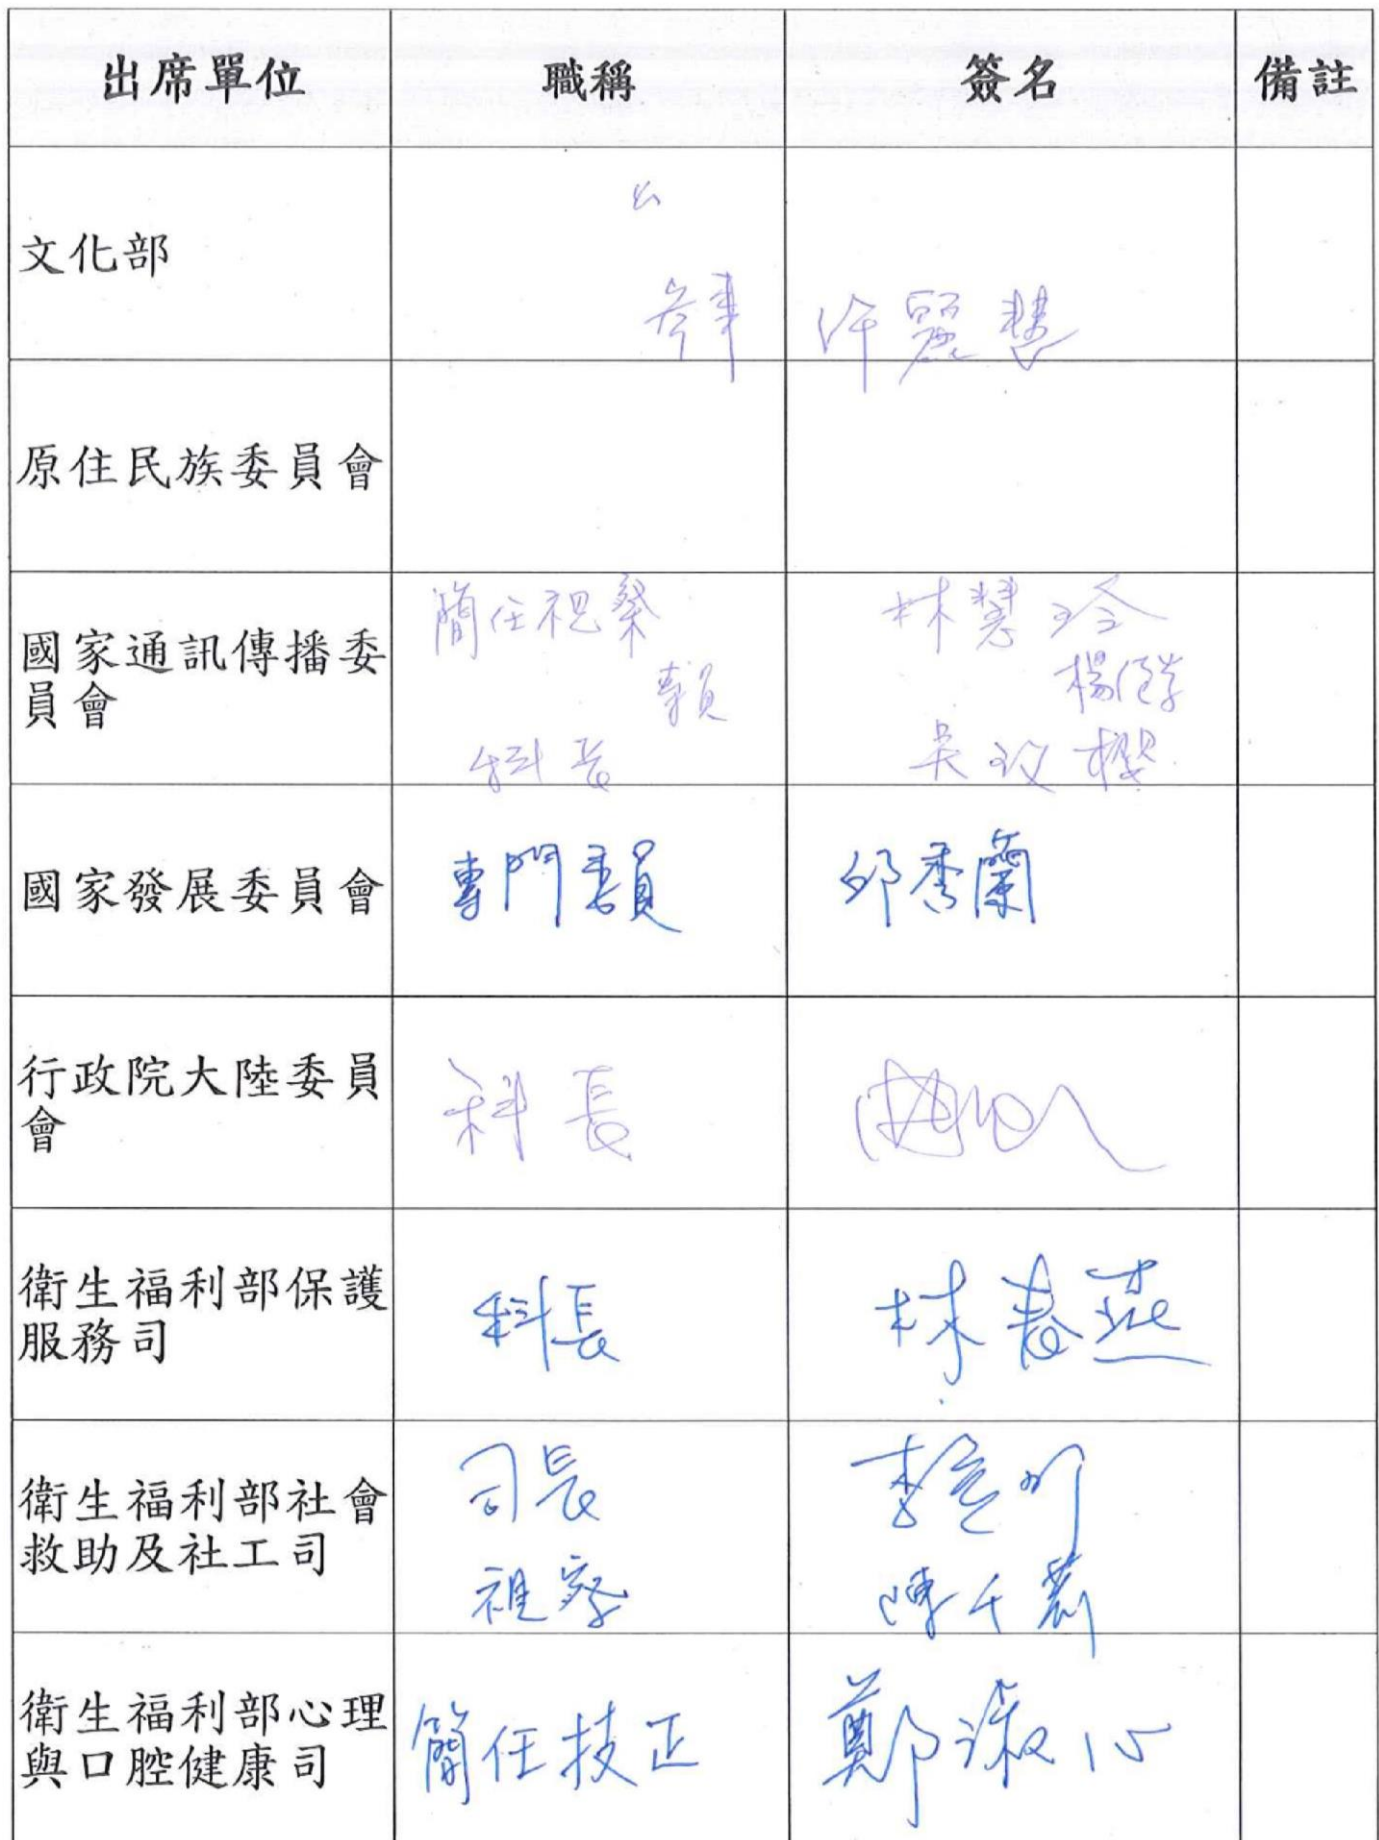 出席單位 職稱 簽名 備註
文化部
參事 許麗慧
原住民族委員會
國家通訊傳播委
員會
簡任視察 林慧玲
專員
科長 吳玟櫻
國家發展委員會 專門委員 邱秀蘭
行政院大陸委員
會
科長
衛生福利部保護
服務司
科長 林春燕
衛生福利部社會
救助及社工司
司長
視察 陳千莉
衛生福利部心理
與口腔健康司
簡任技正 鄭淑心